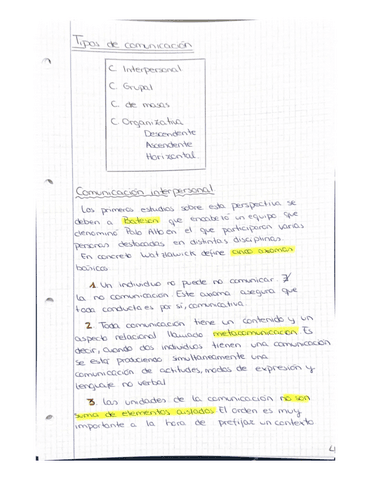 Tipos de comunicación
C. Interpersonal
C. Grupal
C. de masas
C. Organizativa
Descendente
Ascendente
Horizontal.
Comunicación interpersonal
Los primeros estudios sobre esta perspectiva se
deben a Bateson que encabezó un equipo que
denominó Palo Alto en el que participaron varias
personas destacadas en distintas disciplinas.
En concreto Watzlawick define cinco axiomas
básicos.
1. Un individuo no puede no comunicar.
la no comunicación. Este axioma asegura que
toda conducta es por sí, comunicativa.
2. Toda comunicación tiene un contenido y un
aspecto relacional llamado metacomunicación. Es
decir, cuando dos individuos tienen una comunicación
se está produciendo simultáneamente una
comunicación de actitudes, modos de expresión y
lenguaje no verbal
3. Las unidades de la comunicación no son
suma de elementos aislados. El orden es muy
importante a la hora de prefijar un contexto